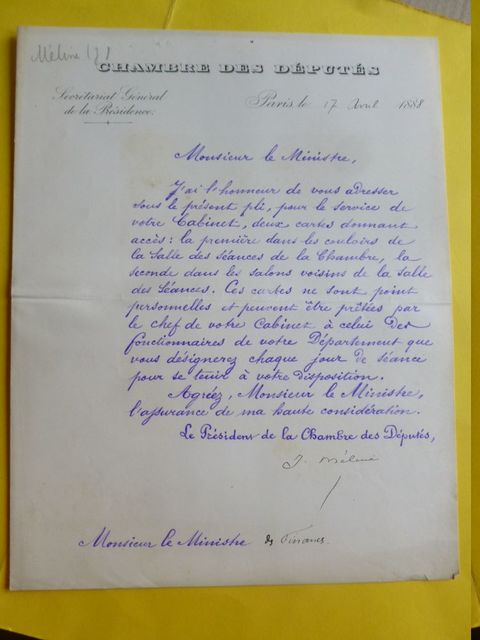 Méline
CHAMBRE DES DÉPUTÉS
Secrétariat Général
de la Présidence.
Paris, le 17 Avril 1888
Monsieur le Ministre,
J'ai l'honneur de vous adresser
sous le présent pli, pour le service de
votre Cabinet, deux cartes donnant
accès: la première dans les couloirs de
la Salle des Séances de la Chambre, la
seconde dans les salons voisins de la Salle
des Séances. Ces cartes ne sont point
personnelles et peuvent être prêtées par
le chef de votre Cabinet à celui des
fonctionnaires de votre Département que
vous désignerez chaque jour de séance
pour se tenir à votre disposition.
Agréez, Monsieur le Ministre,
l'assurance de ma haute considération.
Le Président de la Chambre des Députés,
J. Méline
Monsieur le Ministre des Finances.